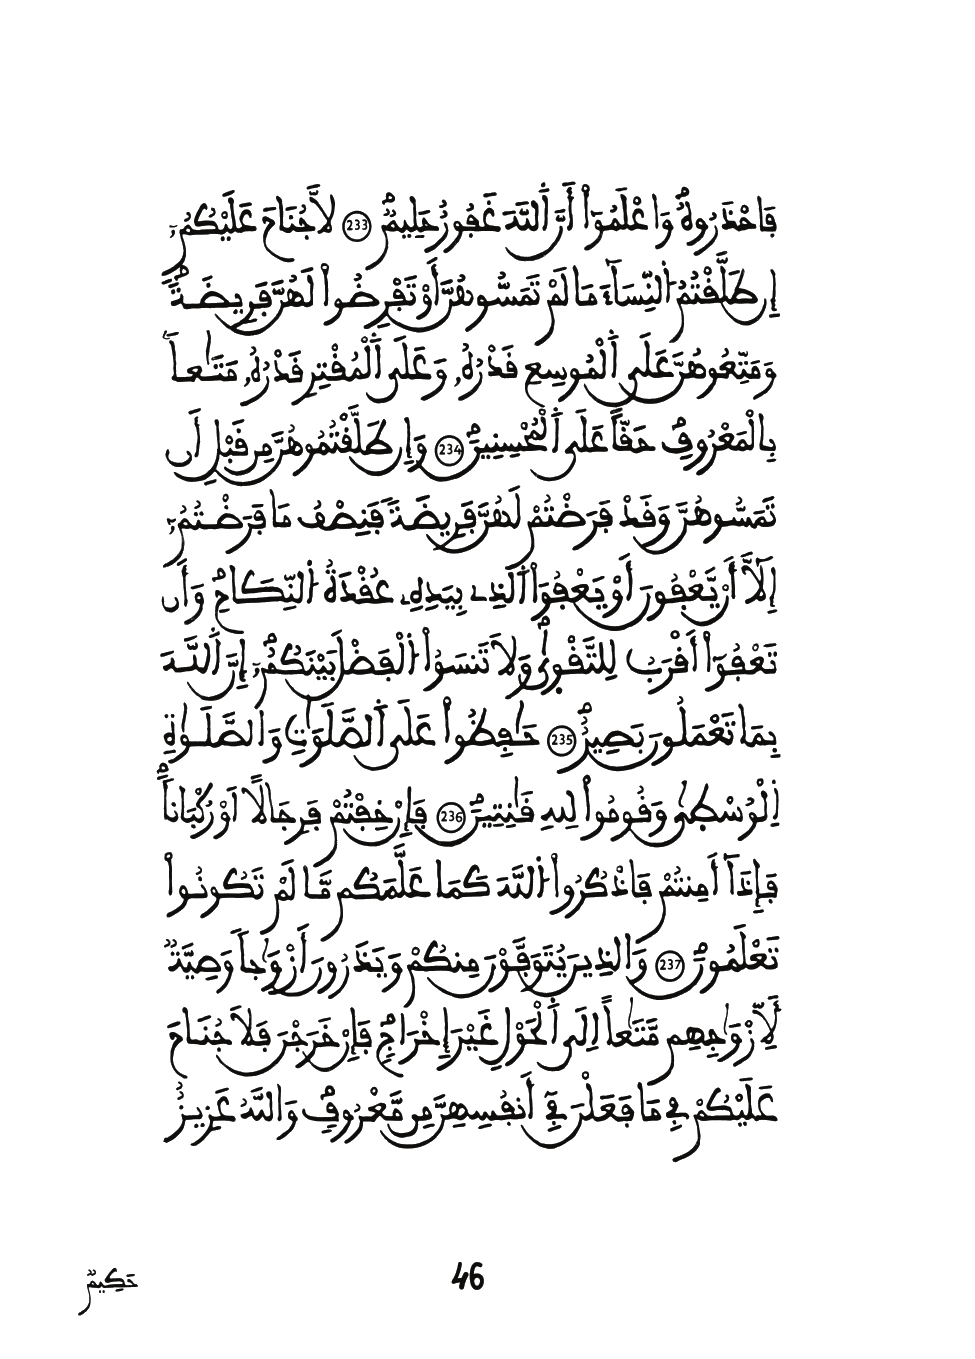 فَاحْذَرُوهُۖ وَاعْلَمُوٓاْ أَنَّ اَ۬للَّهَ غَفُورٌ حَلِيمٞۖ 233 لَّا جُنَاحَ عَلَيْكُمُۥٓ
إِن طَلَّقْتُمُ اُ۬لنِّسَآءَ مَا لَمْ تَمَسُّوهُنَّ أَوْ تَفْرِضُواْ لَهُنَّ فَرِيضَةٗۖ
وَمَتِّعُوهُنَّ عَلَى اَ۬لْمُوسِعِ قَدْرُهُۥ وَعَلَى اَ۬لْمُقْتِرِ قَدْرُهُۥ مَتَٰعاَۢ
بِالْمَعْرُوفِۖ حَقّاً عَلَى اَ۬لْمُحْسِنِينَۖ 234 وَإِن طَلَّقْتُمُوهُنَّ مِن قَبْلِ أَن
تَمَسُّوهُنَّ وَقَدْ فَرَضْتُمْ لَهُنَّ فَرِيضَةٗ فَنِصْفُ مَا فَرَضْتُمُۥٓ
إِلَّآ أَنْ يَّعْفُونَ أَوْ يَعْفُوَاْ اَ۬لذِے بِيَدِهِۦ عُقْدَةُ اُ۬لنِّكَاحِۖ وَأَن
تَعْفُوٓاْ أَقْرَبُ لِلتَّقْوٜيٰۖ وَلَا تَنسَوُاْ اُ۬لْفَضْلَ بَيْنَكُمُۥٓۖ إِنَّ اَ۬للَّهَ
بِمَا تَعْمَلُونَ بَصِيرٌۖ 235 حَٰفِظُواْ عَلَى اَ۬لصَّلَوَٰتِ وَالصَّلَوٰةِ
اِ۬لْوُسْطٜىٰ وَقُومُواْ لِلهِ قَٰنِتِينَۖ 236 فَإِنْ خِفْتُمْ فَرِجَالاً اَوْ رُكْبَاناٗۖ
فَإِذَآ أَمِنتُمْ فَاذْكُرُواْ اُ۬للَّهَ كَمَا عَلَّمَكُم مَّا لَمْ تَكُونُواْ
تَعْلَمُونَۖ 237 وَالذِينَ يُتَوَفَّوْنَ مِنكُمْ وَيَذَرُونَ أَزْوَٰجاً وَصِيَّةٞ
لِّأَزْوَٰجِهِم مَّتَٰعاً اِلَى اَ۬لْحَوْلِ غَيْرَ إِخْرَاجٖۖ فَإِنْ خَرَجْنَ فَلَا جُنَاحَ
عَلَيْكُمْ فِے مَا فَعَلْنَ فِےٓ أَنفُسِهِنَّ مِن مَّعْرُوفٖۖ وَاللَّهُ عَزِيزٌ
حَكِيمٞ
46